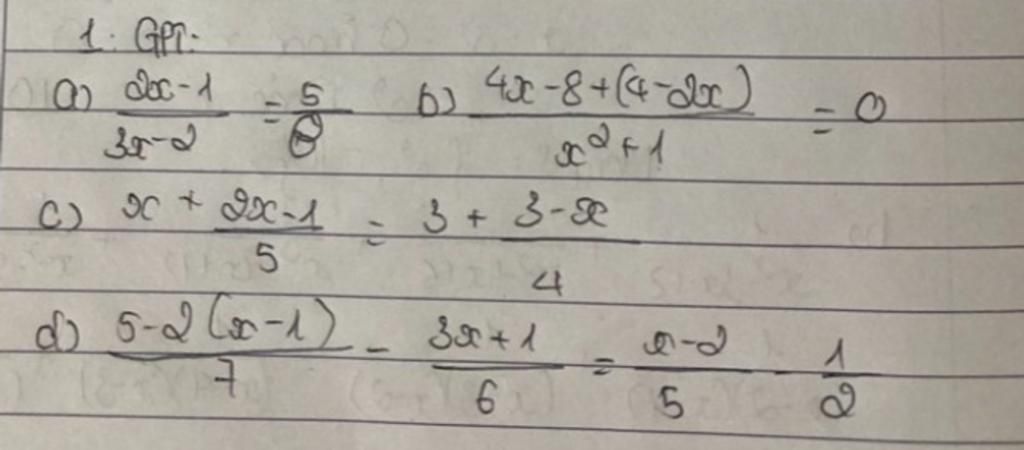 1. GPT:
a) (2x-1)/(3x-2) = 5/8 b) (4x-8+(4-2x))/(x²+1) = 0
c) x + (2x-1)/5 = 3 + (3-x)/4
d) (5-2(x-1))/7 - (3x+1)/6 = (x-2)/5 - 1/2